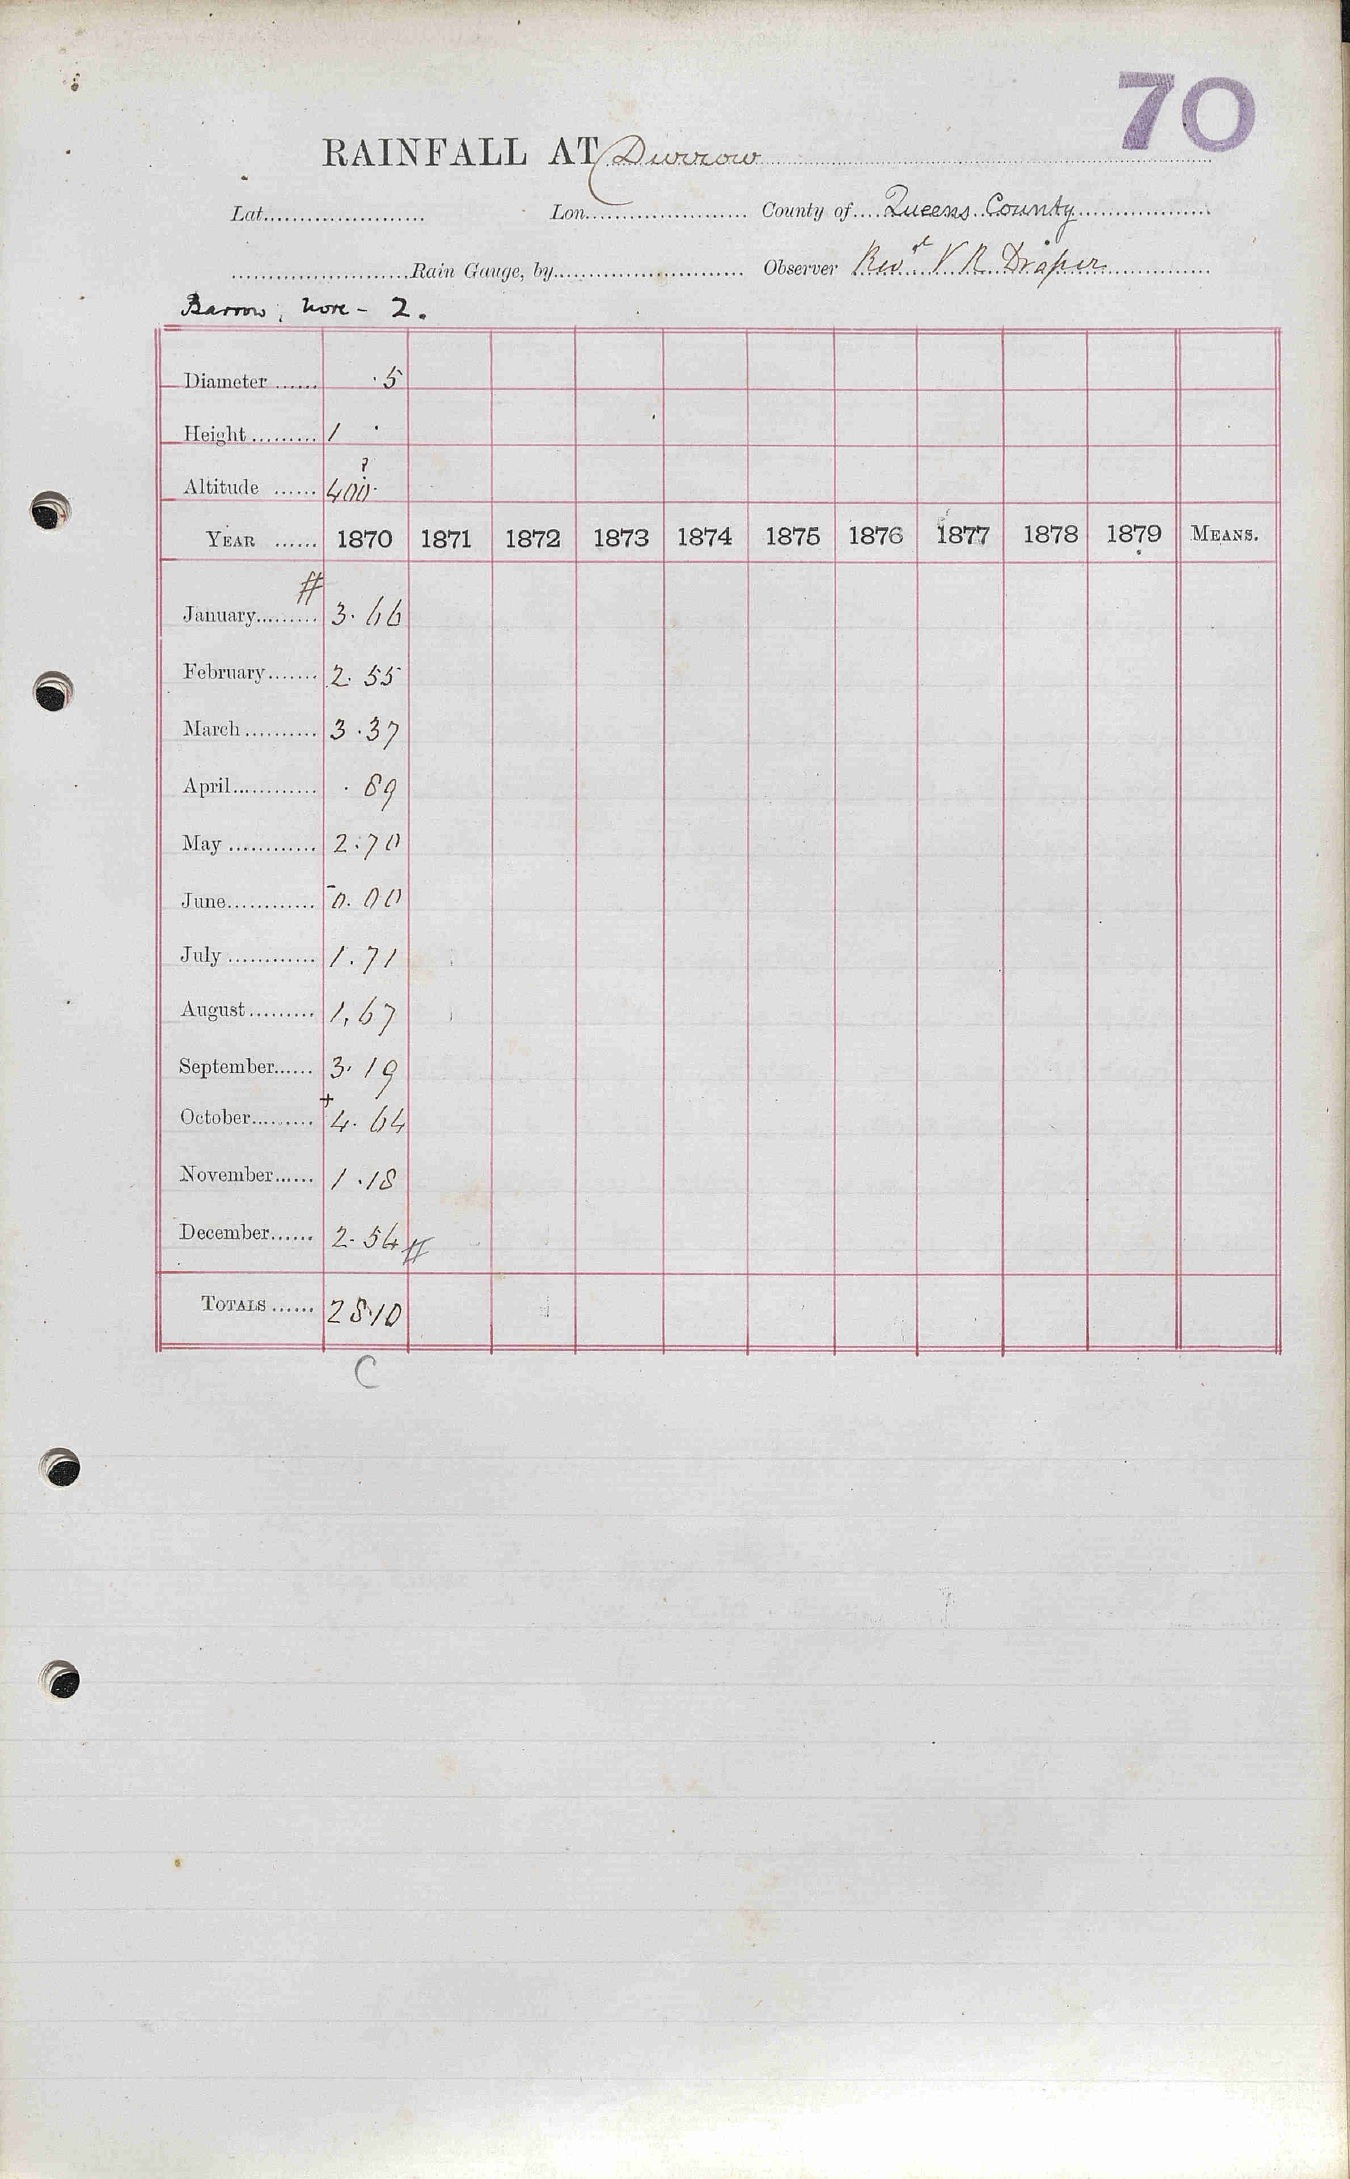 70
RAINFALL AT Durrow
Lat. Lon. County of Queens County
Rain Gauge, by Observer Revd V R Draper
Barrow, Nore - 2.
Diameter ...... ·5
Height ......... 1 ·
Altitude ...... 400· ?
YEAR ...... 1870 1871 1872 1873 1874 1875 1876 1877 1878 1879 MEANS.
#
January......... 3·66
February....... 2·55
March .......... 3·37
April............ ·89
May ............ 2·70
June............ -0.00
July ............ 1.71
August......... 1.67
September...... 3·19
October......... +4·64
November...... 1·18
December...... 2·54 #
TOTALS ...... 28·10
C